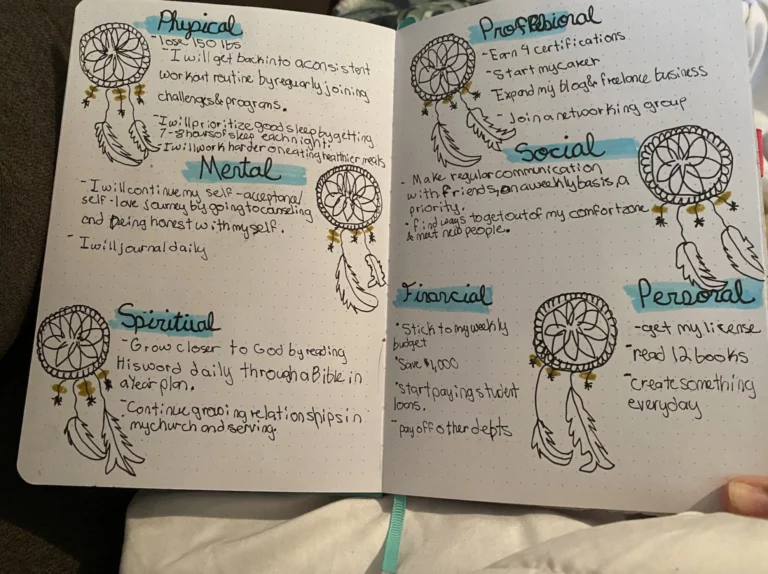 Physical
- lose 150 lbs
- I will get back into a consistent
workout routine by regularly joining
challenges & programs.
- I will prioritize good sleep by getting
7-8 hours of sleep each night.
- I will work harder on eating healthier meals
Mental
- I will continue my self-acceptance/
self-love journey by going to counseling
and being honest with myself.
- I will journal daily
Spiritual
- Grow closer to God by reading
His word daily through a Bible in
a Year plan.
- Continue growing relationships in
my church and serving.
Professional
- Earn 4 certifications
- Start my career
Expand my blog & freelance business
- Join a networking group
Social
- Make regular communication
with friends, on a weekly basis, a
priority.
- find ways to get out of my comfort zone
& meet new people.
Financial
- Stick to my weekly
budget
- Save $1,000
- Start paying student
loans.
- pay off other depts
Personal
- get my license
- read 12 books
- create something
everyday